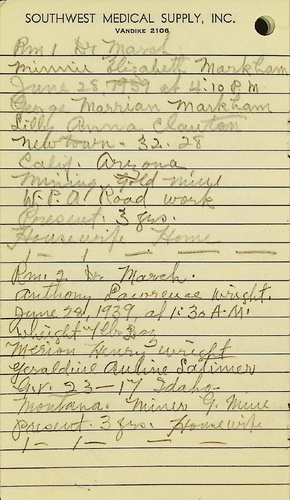 SOUTHWEST MEDICAL SUPPLY, INC.
VANDIKE 2106
Rm 1 Dr March
Minnie Elizabeth Markham
June 28 1939 at 4:10 P.M.
George Marrian Markham
Lilly Anna Clayton
New town - 32 - 28
Calif. Arizona
Mining Gold mine
W.P.A. Road work
Present. 3 yrs.
Housewife Home
1 - 1 - - -
Rm. 2. Dr March.
Anthony Lawrence Wright.
June 28, 1939, at 1:30 A.M.
Wright 7lb Boy
Merion Henry Wright
Geraldine Auline Latimer
G.V. 23-17 Idaho-
Montana. Miner G. Mine
Present. 3 yrs. Housewife
1 - 1 - - -